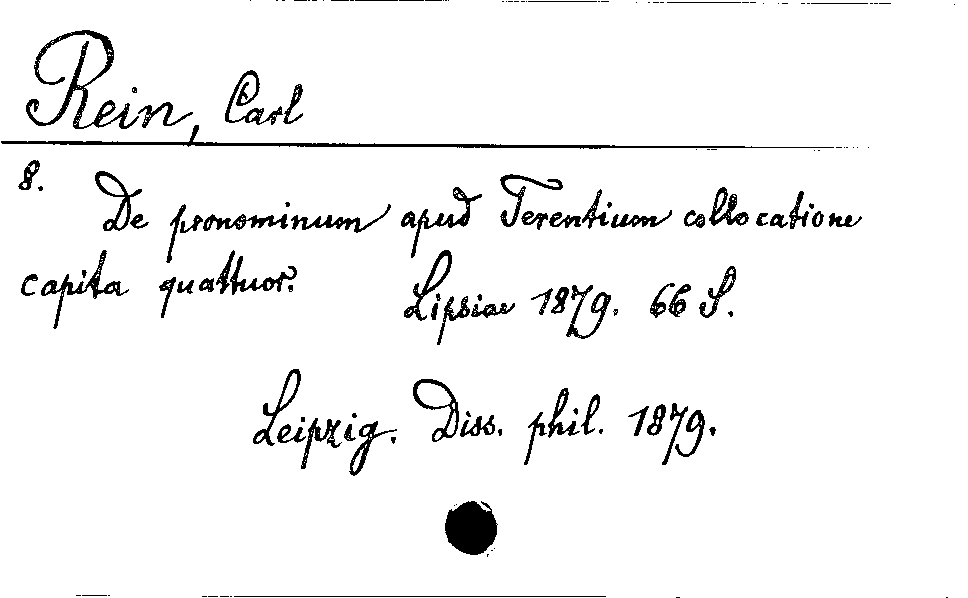 Rein, Carl
8.
De pronominum apud Terentium collocatione
capita quattuor.
Lipsiae 1879. 66 S.
Leipzig. Diss. phil. 1879.